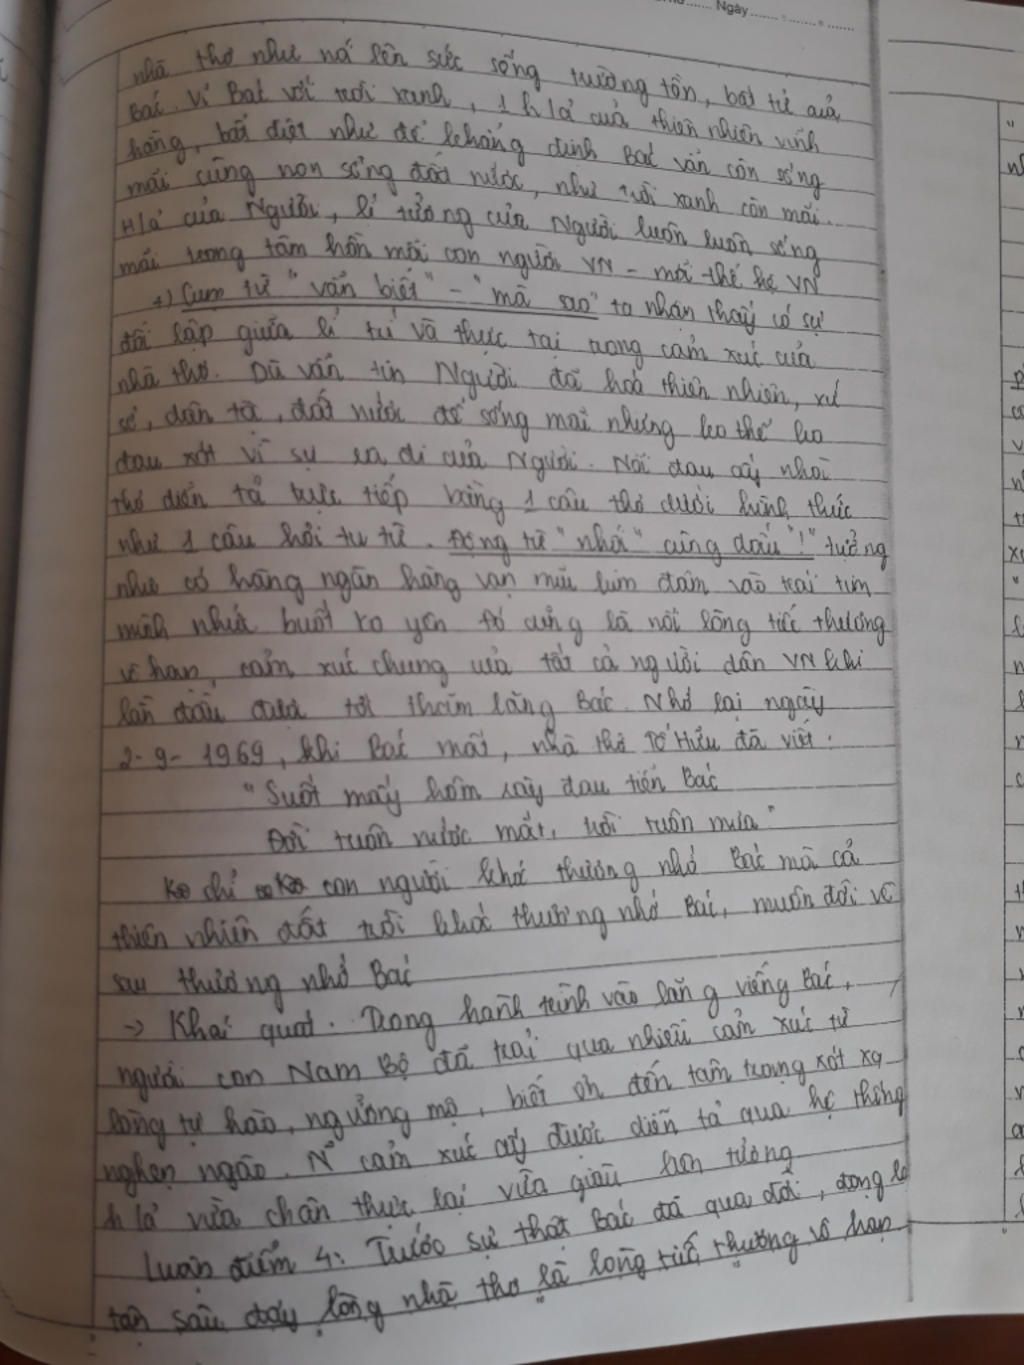 Ngày
nhà thơ như nói lên sức sống trường tồn, bất tử của
Bác. Ví Bác với trời xanh, 1 h/ả của thiên nhiên vĩnh
hằng, bất diệt như để khẳng định Bác vẫn còn sống
mãi cùng non sông đất nước, như trời xanh còn mãi.
H/ả của Người, lí tưởng của Người luôn luôn sống
mãi trong tâm hồn mỗi con người VN - mọi thế hệ VN
+) Cụm từ "vẫn biết" - "mà sao" ta nhận thấy có sự
đối lập giữa lí trí và thực tại trong cảm xúc của
nhà thơ. Dù vẫn tin Người đã hoá thiên nhiên, xứ
sở, dân tộc, đất nước để sống mãi nhưng ko thể ko
đau xót vì sự ra đi của Người. Nỗi đau ấy nhà
thơ diễn tả trực tiếp bằng 1 câu thơ dưới hình thức
như 1 câu hỏi tu từ. Động từ "nhói" cùng dấu "!" tưởng
như có hàng ngàn hàng vạn mũi kim đâm vào trái tim
mình nhức buốt ko yên đó cũng là nỗi lòng tiếc thương
vô hạn, cảm xúc chung của tất cả người dân VN khi
lần đầu được tới thăm lăng Bác. Nhớ lại ngày
2-9-1969, khi Bác mất, nhà thơ Tố Hữu đã viết:
"Suốt mấy hôm rày đau tiễn Bác
Đời tuôn nước mắt, trời tuôn mưa"
Ko chỉ có con người khóc thương nhớ Bác mà cả
thiên nhiên đất trời khóc thương nhớ Bác, muôn đời về
sau thương nhớ Bác
-> Khái quát. Trong hành trình vào lăng viếng Bác,
người con Nam Bộ đã trải qua nhiều cảm xúc từ
lòng tự hào, ngưỡng mộ, biết ơn đến tâm trạng xót xa
nghẹn ngào. N~ cảm xúc ấy được diễn tả qua hệ thống
h/ả vừa chân thực lại vừa giàu liên tưởng
Luận điểm 4: Trước sự thật Bác đã qua đời, đọng lại
tận sâu đáy lòng nhà thơ là lòng tiếc thương vô hạn